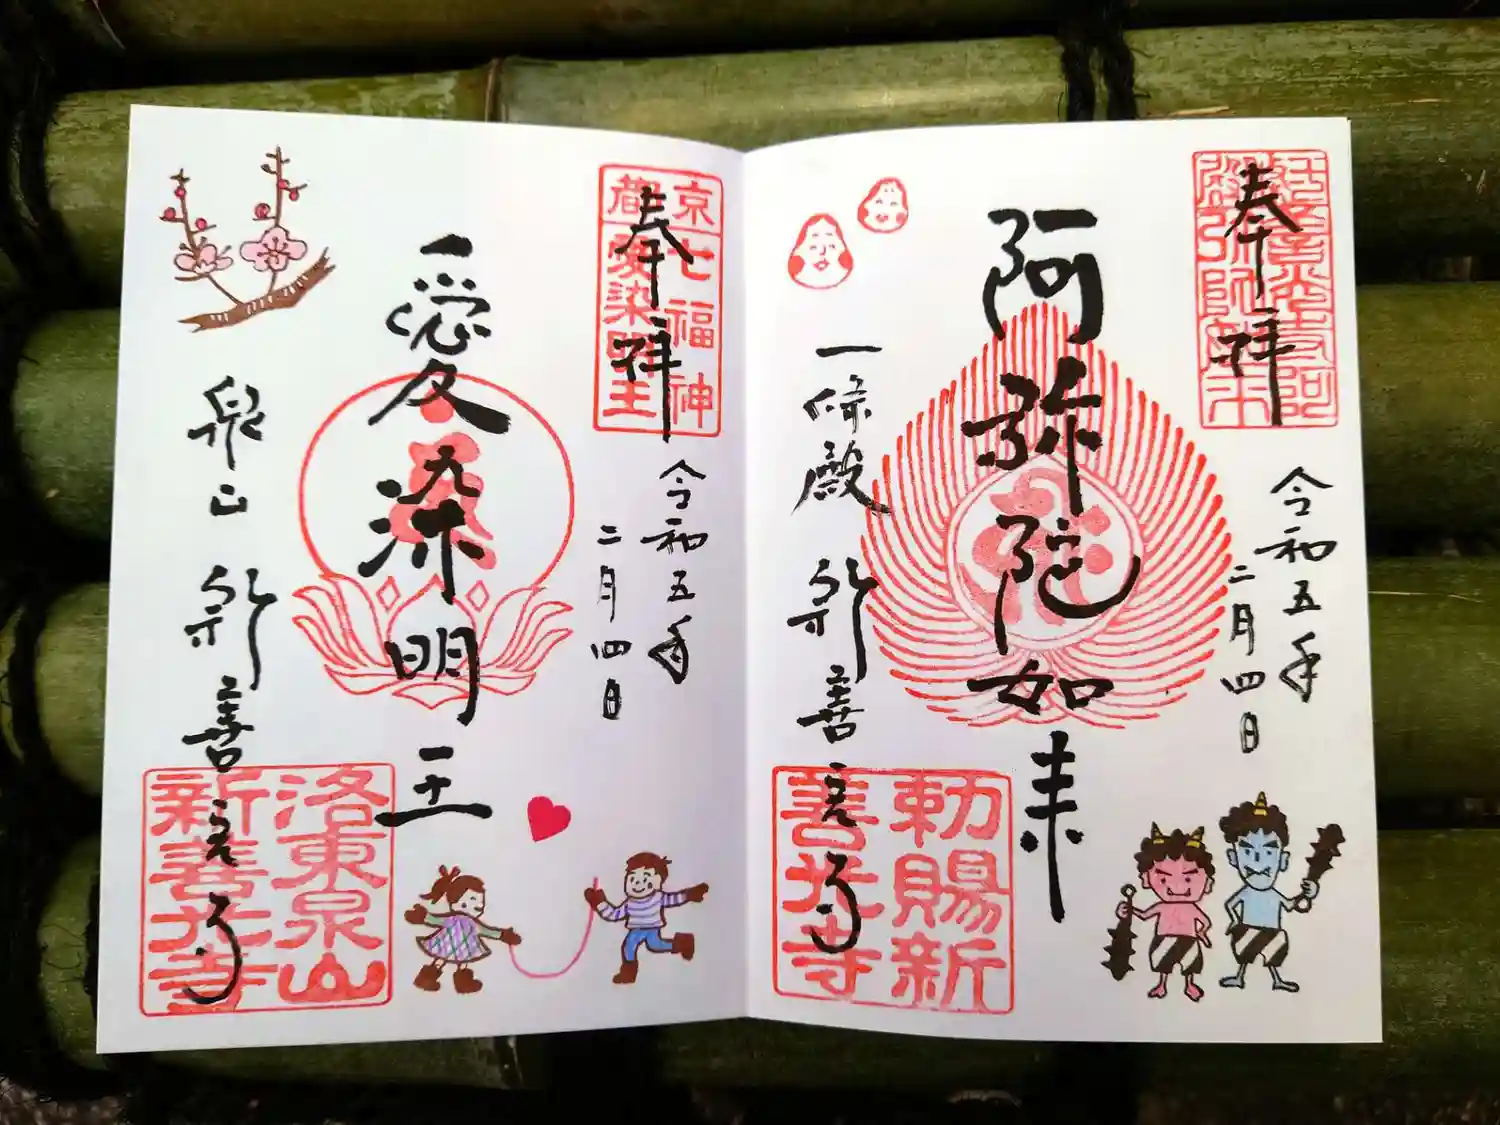 奉拝
令和五年
二月四日
阿弥陀如来
一條殿 新善光寺
勅賜新
善光寺
奉拝
京七福神
都愛染明王
令和五年
二月四日
愛染明王
泉山 新善光寺
洛東泉山
新善光寺